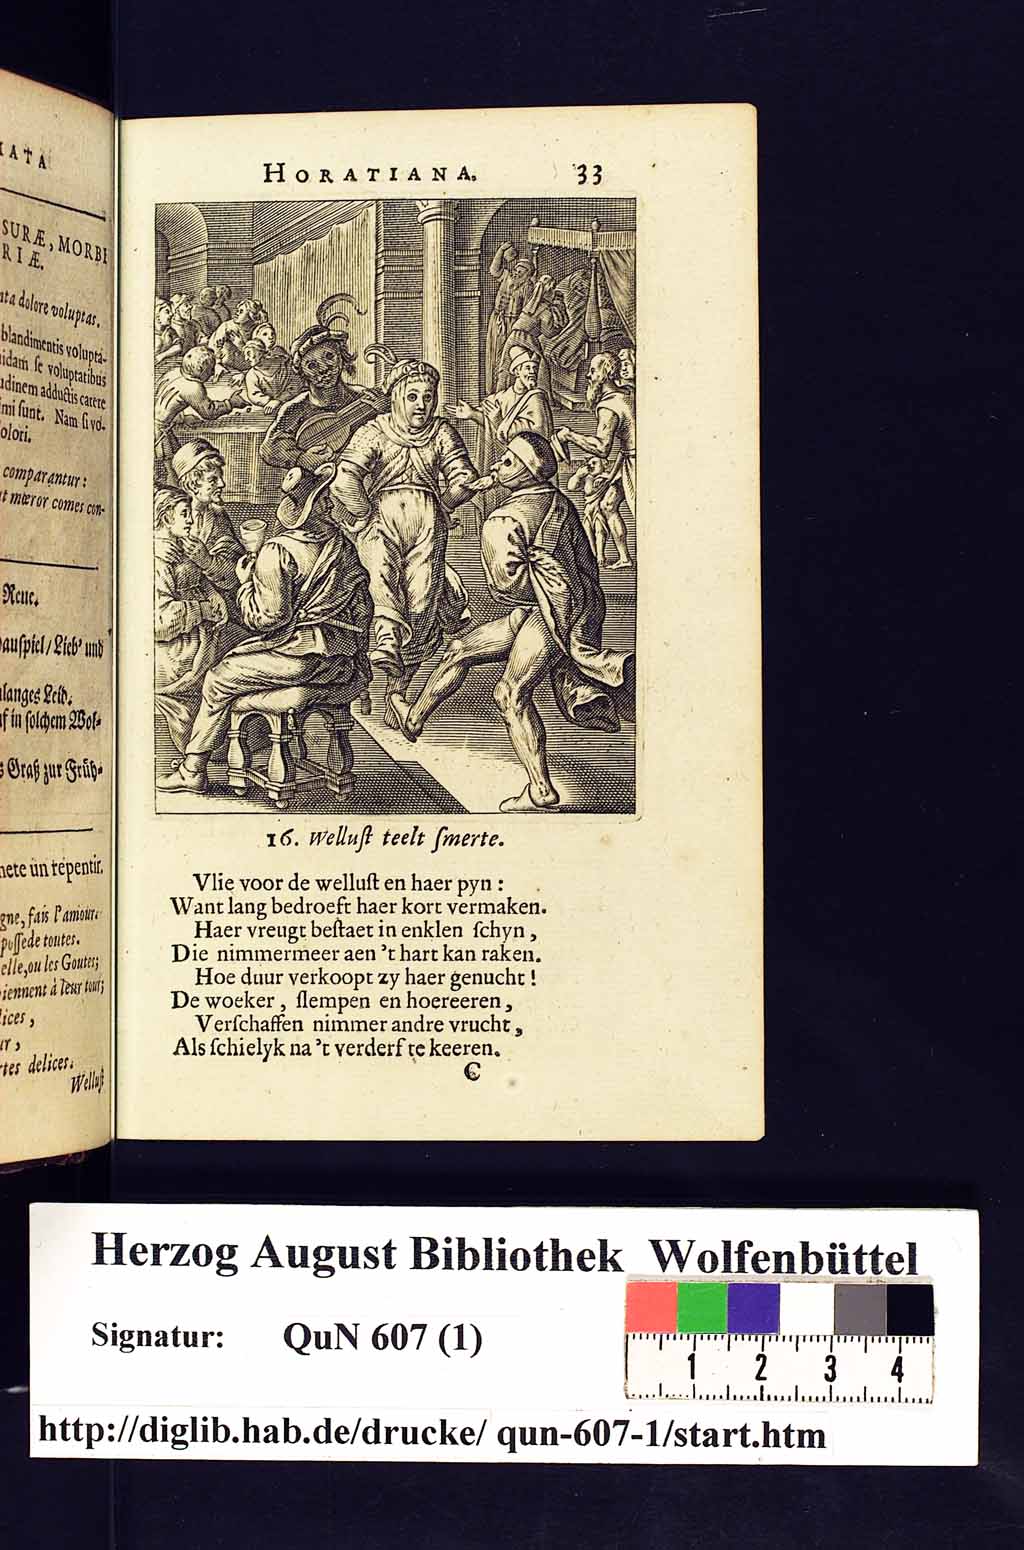 MATA
SURÆ, MORBI
RIÆ.
dolore voluptas.
blandimentis volupta-
se voluptatibus
adductis carere
sunt. Nam si vo-
comparantur:
mœror comes con-
Reue.
Lieb' und
in solchem Wol-
Graß zur Früh-
un repentir.
fais l'amour
possede toutes.
ou les Goutes;
à leur tour;
delices.
Wellust
HORATIANA. 33
16. Wellust teelt ſmerte.
Vlie voor de welluſt en haer pyn:
Want lang bedroeft haer kort vermaken.
Haer vreugt beſtaet in enklen ſchyn,
Die nimmermeer aen 't hart kan raken.
Hoe duur verkoopt zy haer genucht!
De woeker, ſlempen en hoereeren,
Verſchaffen nimmer andre vrucht,
Als ſchielyk na 't verderf te keeren.
C
Herzog August Bibliothek Wolfenbüttel
Signatur: QuN 607 (1)
1 2 3 4
http://diglib.hab.de/drucke/ qun-607-1/start.htm